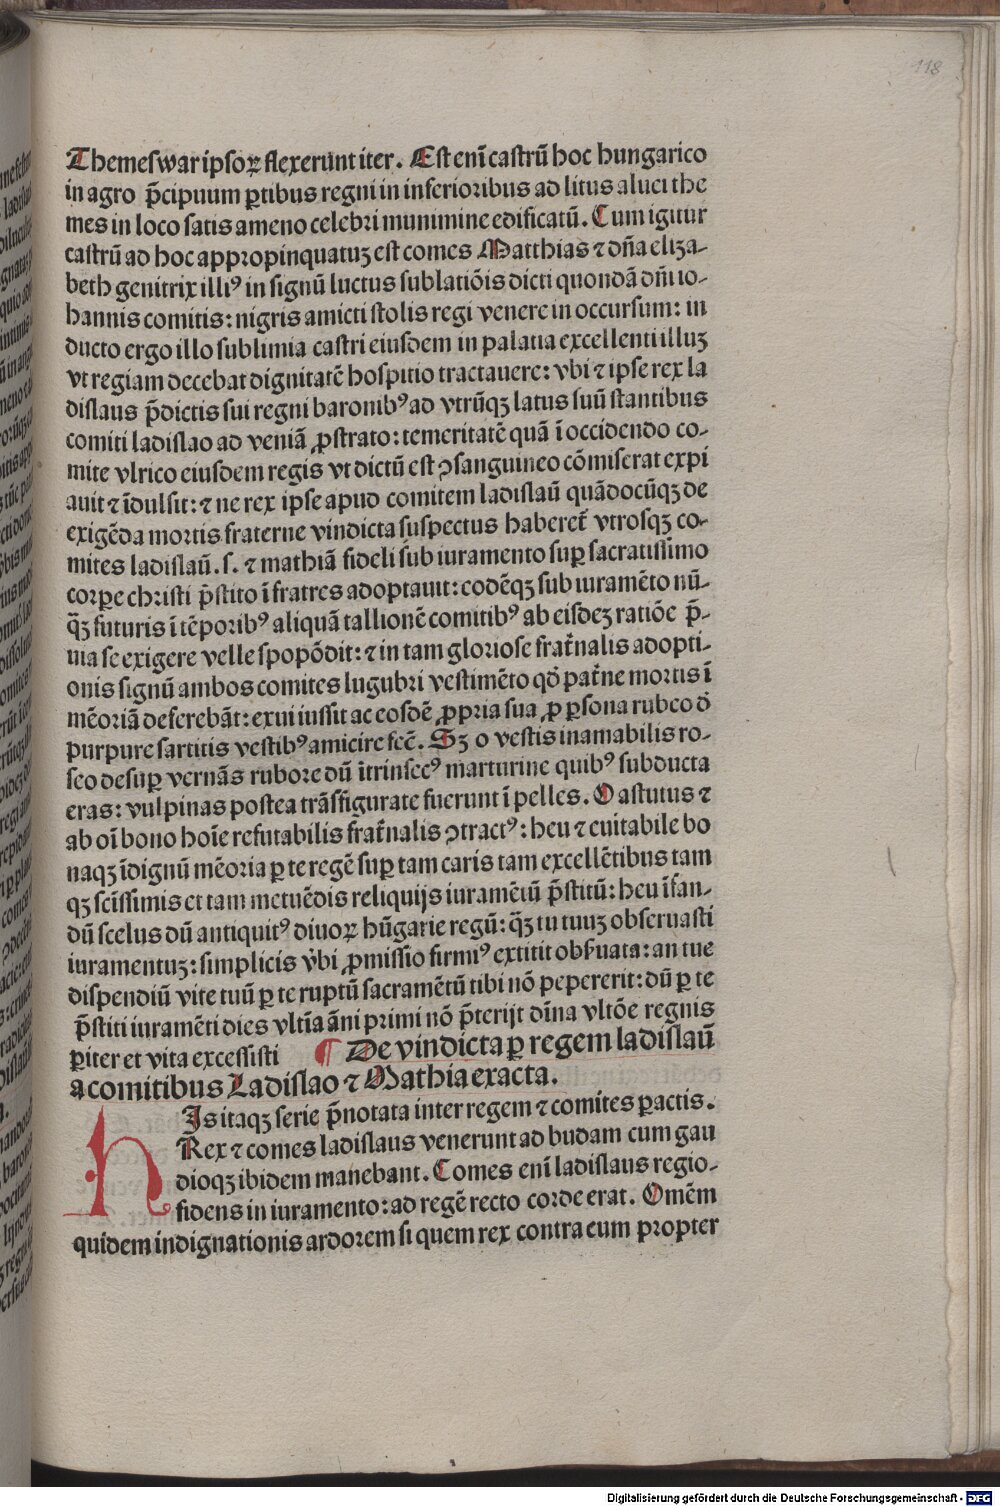 118
Themeswar ipsoꝝ flexerunt iter. Est enī castrū hoc hungarico
in agro p̄cipuum ꝑtibus regni in inferioribus ad litus aluei the
mes in loco satis ameno celebri munimine edificatū. Cum igitur
castrū ad hoc appropinquatuꝫ est comes Matthias ⁊ dn̄a eliza-
beth genitrix illiꝰ in signū luctus sublatiōis dicti quondā dn̄i io-
hannis comitis: nigris amicti stolis regi venere in occursum: in
ducto ergo illo sublimia castri eiusdem in palatia excellenti illuꝫ
vt regiam decebat dignitatē hospitio tractauere: vbi ⁊ ipse rex la
dislaus p̄dictis sui regni baronibꝰ ad vtrūqꝫ latus suū stantibus
comiti ladislao ad veniā ꝓstrato: temeritatē quā ī occidendo co-
mite vlrico eiusdem regis vt dictū est ꝯsanguineo cōmiserat expi
auit ⁊ īdulsit: ⁊ ne rex ipse apud comitem ladislaū quādocūqꝫ de
exigēda mortis fraterne vindicta suspectus haberet᷑ vtrosqꝫ co-
mites ladislaū .s. ⁊ mathiā fideli sub iuramento suꝑ sacratissimo
corꝑe christi p̄stito ī fratres adoptauit: eodēqꝫ sub iuramēto nū-
q̄ꝫ futuris ī tēporibꝰ aliquā tallionē comitibꝰ ab eisdeꝫ ratiōe p̄-
uia se exigere velle spopōdit: ⁊ in tam gloriose frat᷑nalis adopti-
onis signū ambos comites lugubri vestimēto qd̄ pat᷑ne mortis ī
mēoriā deferebāt: exui iussit ac eosdē ꝓpria sua ꝓ ꝑsona rubeo d̄
purpure sartitis vestibꝰ amicire fec̄. Sꝫ o vestis inamabilis ro-
seo desuꝑ vernās rubore dū ītrinsecꝰ marturine quibꝰ subducta
eras: vulpinas postea trāsfigurate fuerunt ī pelles. O astutus ⁊
ab oī bono hoīe refutabilis frat᷑nalis ꝯtractꝰ: heu ⁊ euitabile bo
naqꝫ īdignū mēoria ꝑ te regē suꝑ tam caris tam excellētibus tam
qꝫ scīssimis et tam metuēdis reliquijs iuramētū p̄stitū: heu īfan-
dū scelus dū antiquitꝰ diuoꝝ hūgarie regū: q̄ꝫ tu tuuꝫ obseruasti
iuramentuꝫ: simplicis v̓bi ꝓmissio firmiꝰ extitit obẜuata: an tue
dispendiū vite tuū ꝑ te ruptū sacramētū tibi nō pepererit: dū ꝑ te
p̄stiti iuramēti dies vltīa āni primi nō p̄terijt dīna vltōe regnis
ꝑiter et vita excessisti ¶ De vindicta ꝑ regem ladislaū
a comitibus Ladislao ⁊ Mathia exacta.
HIs itaqꝫ serie p̄notata inter regem ⁊ comites ꝑactis.
Rex ⁊ comes ladislaus venerunt ad budam cum gau
dioqꝫ ibidem manebant. Comes enī ladislaus regio-
fidens in iuramento: ad regē recto corde erat. Omēm
quidem indignationis ardorem si quem rex contra eum propter
Digitalisierung gefördert durch die Deutsche Forschungsgemeinschaft - DFG